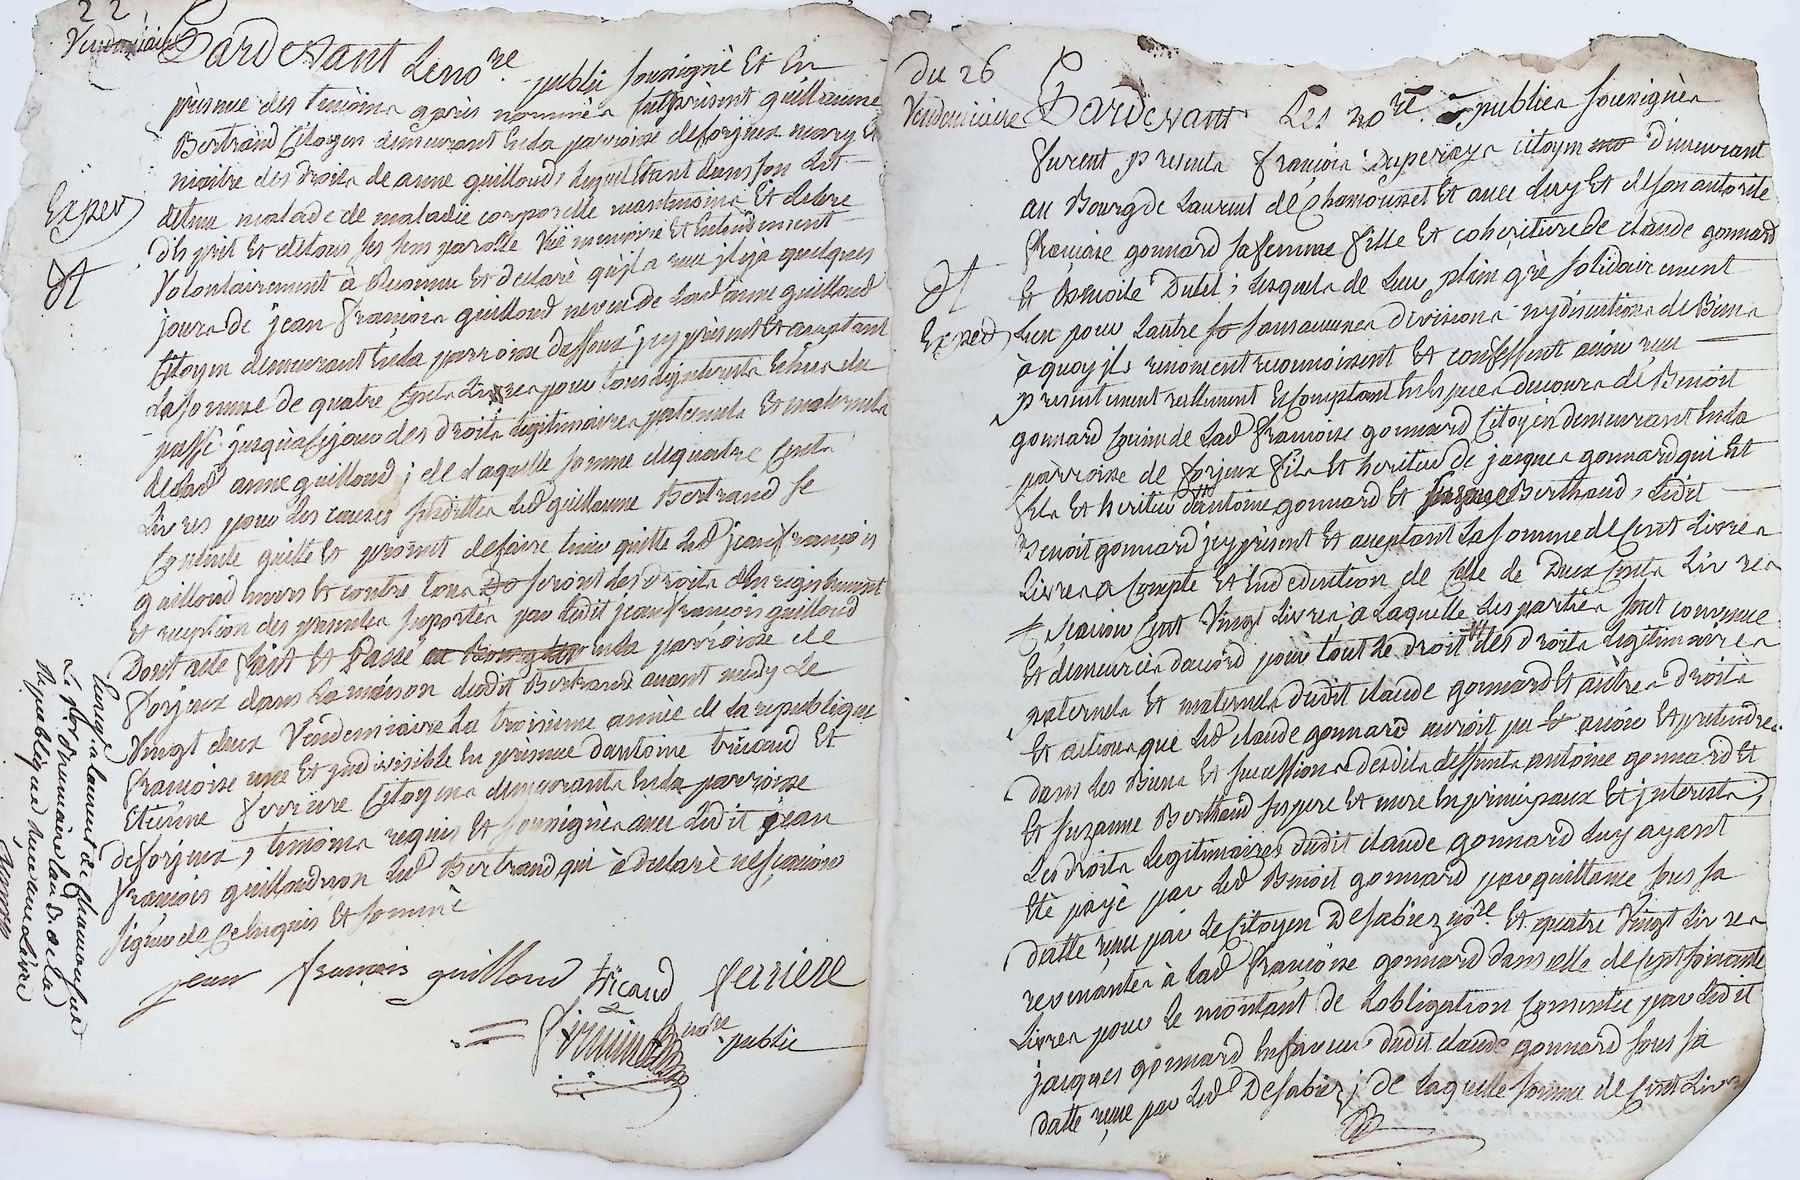 22
Vendemiaire
Pardevant Le no.re public soussigné Et En
presence des temoins après nommés fut présent guillaume
Bertrand Citoyen demeurant En la parroisse de forjeux mary Et
maitre des droits de anne guilloud, lequel Etant dans son Lit
detenu malade de maladie corporelle neantmoins Et Libre
d'Esprit Et de tous ses sens parolle vüe memoire Et Entendement
Volontairement à Reconnu Et declaré qu'jl a reçu jl y a quelques
jours de jean françois guilloud neveu de lad anne guilloud
Citoyen demeurant En la parroisse jcy présent Et acceptant
La somme de quatre Cents Livres pour tous Echus du
passé jusqu'à ce jour des droits Legitimaires paternels Et maternels
de lad anne guilloud ; de Laquelle somme de quatre Cents
Livres pour Les causes susdittes led guillaume Bertrand se
Contente quitte Et promet de faire tenir quitte led jean françois
guilloud Envers Et contre tous seront les droits d'Enregistrement
Et reception des presentes suportés par Ledit jean francois guilloud
Dont acte fait Et Passé En la parroisse de
forjeux dans La maison dudit Bertrand avant midy Le
Vingt deux Vendemiaire La troisieme année de La republique
francoise une Et jndivisible En presence d'antoine tricaud Et
Etienne ferriere Citoyens demeurants En la parroisse
de forjeux, temoins requis Et soussignés avec Ledit jean
françois guilloud non led Bertrand qui à declaré ne sçavoir
signer de Ce Enquis Et sommé
jean francois guilloud tricaud ferriere
no.re
public
Exped
Enregé a laurent de chamousset
Le brumaire l'an 3e de la
Republique
du 26
Vendemiaire
Pardevant Les no.re publics soussignés
furent presents françois Duperay citoyen demeurant
au Bourg de Laurent de Chamousset Et avec luy Et de son autorité
françoise gonnard sa femme fille Et coheritiere de claude gonnard
Et Benoite Dutel ; Lesquels de Leur plein gré solidairement
Exped
L'un pour Lautre sans aucunes divisions ny discutions de Biens
à quoy jls renoncent reconnoissent Et confessent avoir reçu
presentement reellement Et Comptant En Especes du cours de Benoit
gonnard Cousin de Lad françoise gonnard Citoyen demeurant En La
parroisse de forjeux fils Et heritier de jacques gonnard qui Est
fils Et heritier d'antoine gonnard Et Berthaud, Ledit
Benoit gonnard jcy présent Et acceptant La somme de Cent Livres
Livres à Compte Et En deduction de Celle de Deux Cents Livres
Sçavoir Cent Vingt Livres à Laquelle Les parties sont convenue
Et demeurées d'accord pour tout Le droit des droits Legitimaires
paternels Et maternels dudit claude gonnard Et autres droits
Et actions que Led claude gonnard auroit pu avoir Et pretendre
Dans Les Biens Et successions desdits deffunts antoine gonnard Et
Et suzanne Berthaud ses pere Et mere En principaux Et jnterests,
Les droits Legitimaires dudit claude gonnard Luy ayant
Eté payé par Led Benoit gonnard par quittance sous sa
datte reçue par Le Citoyen Desabiez no.re Et quatre Vingt Livres
revenantes à Lad françoise gonnard dans celle de Cent soixante
Livres pour Le montant de Lobligation Consentie par Ledit
jacques gonnard En faveur dudit claude gonnard sous sa
datte reçue par Led Desabiez ; De Laquelle somme de Cent Livres